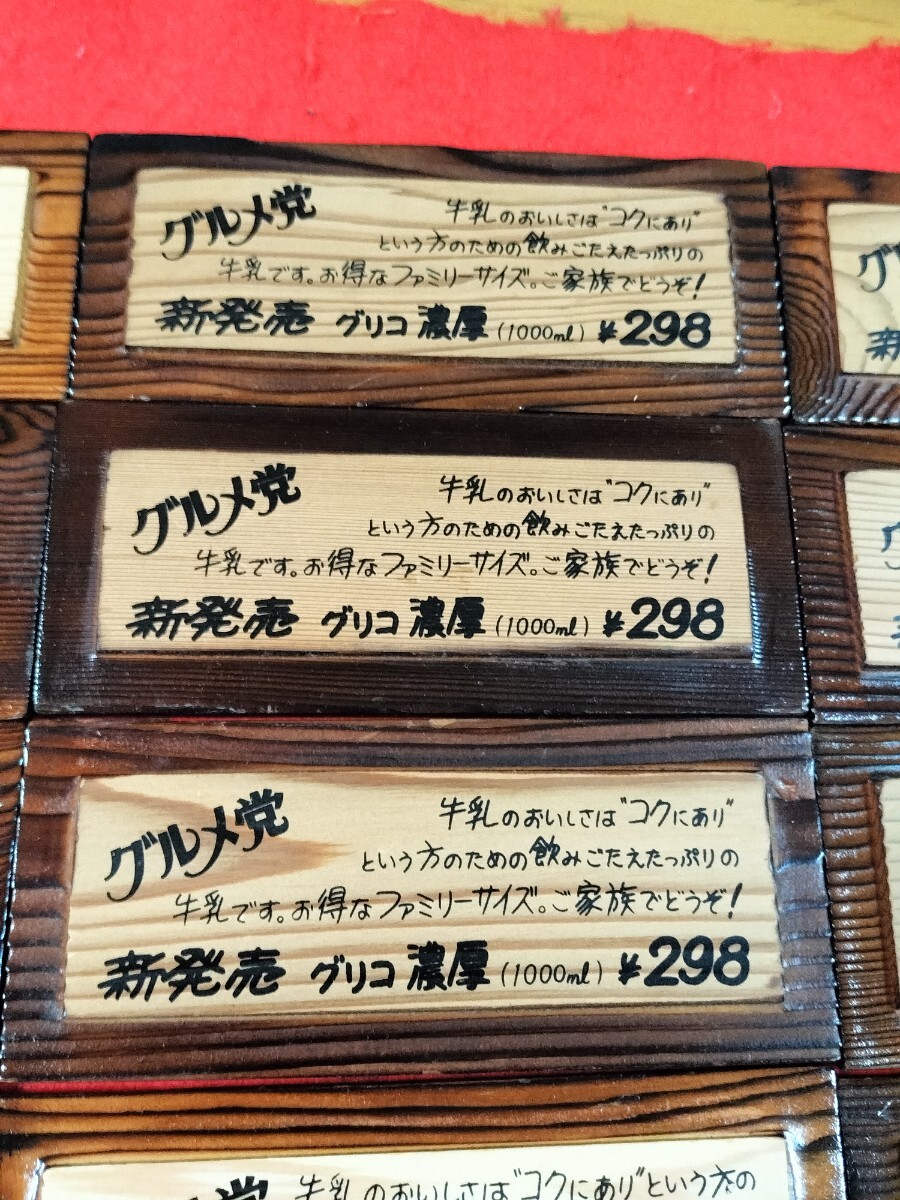 グルメ党
牛乳のおいしさは"コクにあり"
という方のための飲みごたえたっぷりの
牛乳です。お得なファミリーサイズ。ご家族でどうぞ!
新発売 グリコ 濃厚 (1000ml) ¥298
グルメ党
牛乳のおいしさは"コクにあり"
という方のための飲みごたえたっぷりの
牛乳です。お得なファミリーサイズ。ご家族でどうぞ!
新発売 グリコ 濃厚 (1000ml) ¥298
グルメ党
牛乳のおいしさは"コクにあり"
という方のための飲みごたえたっぷりの
牛乳です。お得なファミリーサイズ。ご家族でどうぞ!
新発売 グリコ 濃厚 (1000ml) ¥298
グルメ党
牛乳のおいしさは"コクにあり"という方の
グル
新